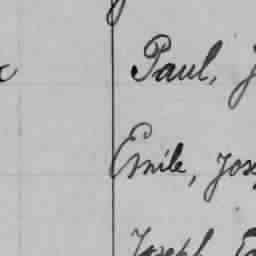 Paul, J
Emile, Jose
Joseph, E